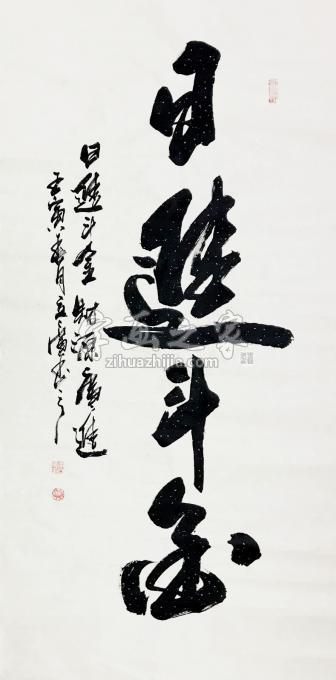 日進斗金
日進斗金 財源廣進
壬寅春月立廣书之
字画之家
zihuazhijia.com